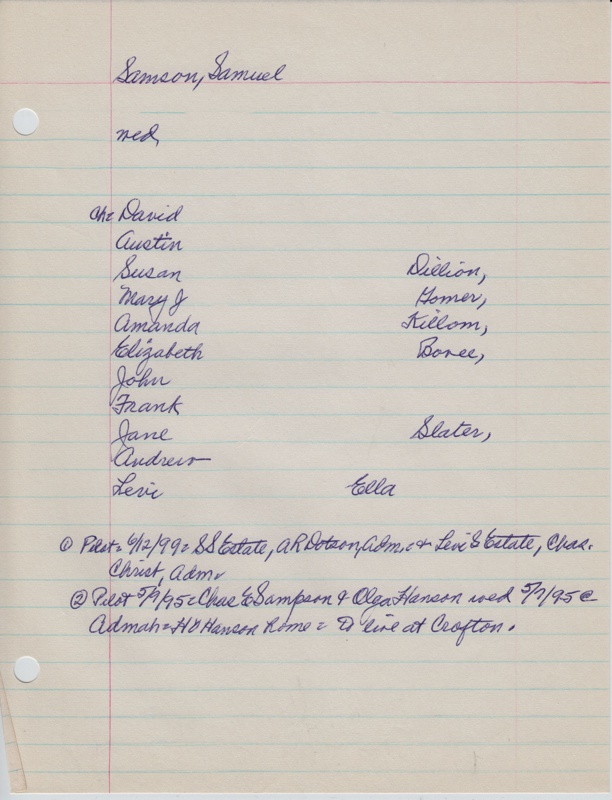 Samson, Samuel
wed,
Ch: David
Austin
Susan Dillion,
Mary J Gomer,
Amanda Killom,
Elizabeth Boree,
John
Frank
Jane Slater,
Andrew
Levi Ella
① Pilot = 6/12/99 = SS Estate, AR Dotson, Adm. & Levi S Estate, Chas.
Christ, Adm.
② Pilot 5/9/95 = Chas E Sampson & Olga Hanson wed 5/7/95 @
Admah = HO Hanson home = To live at Crofton.